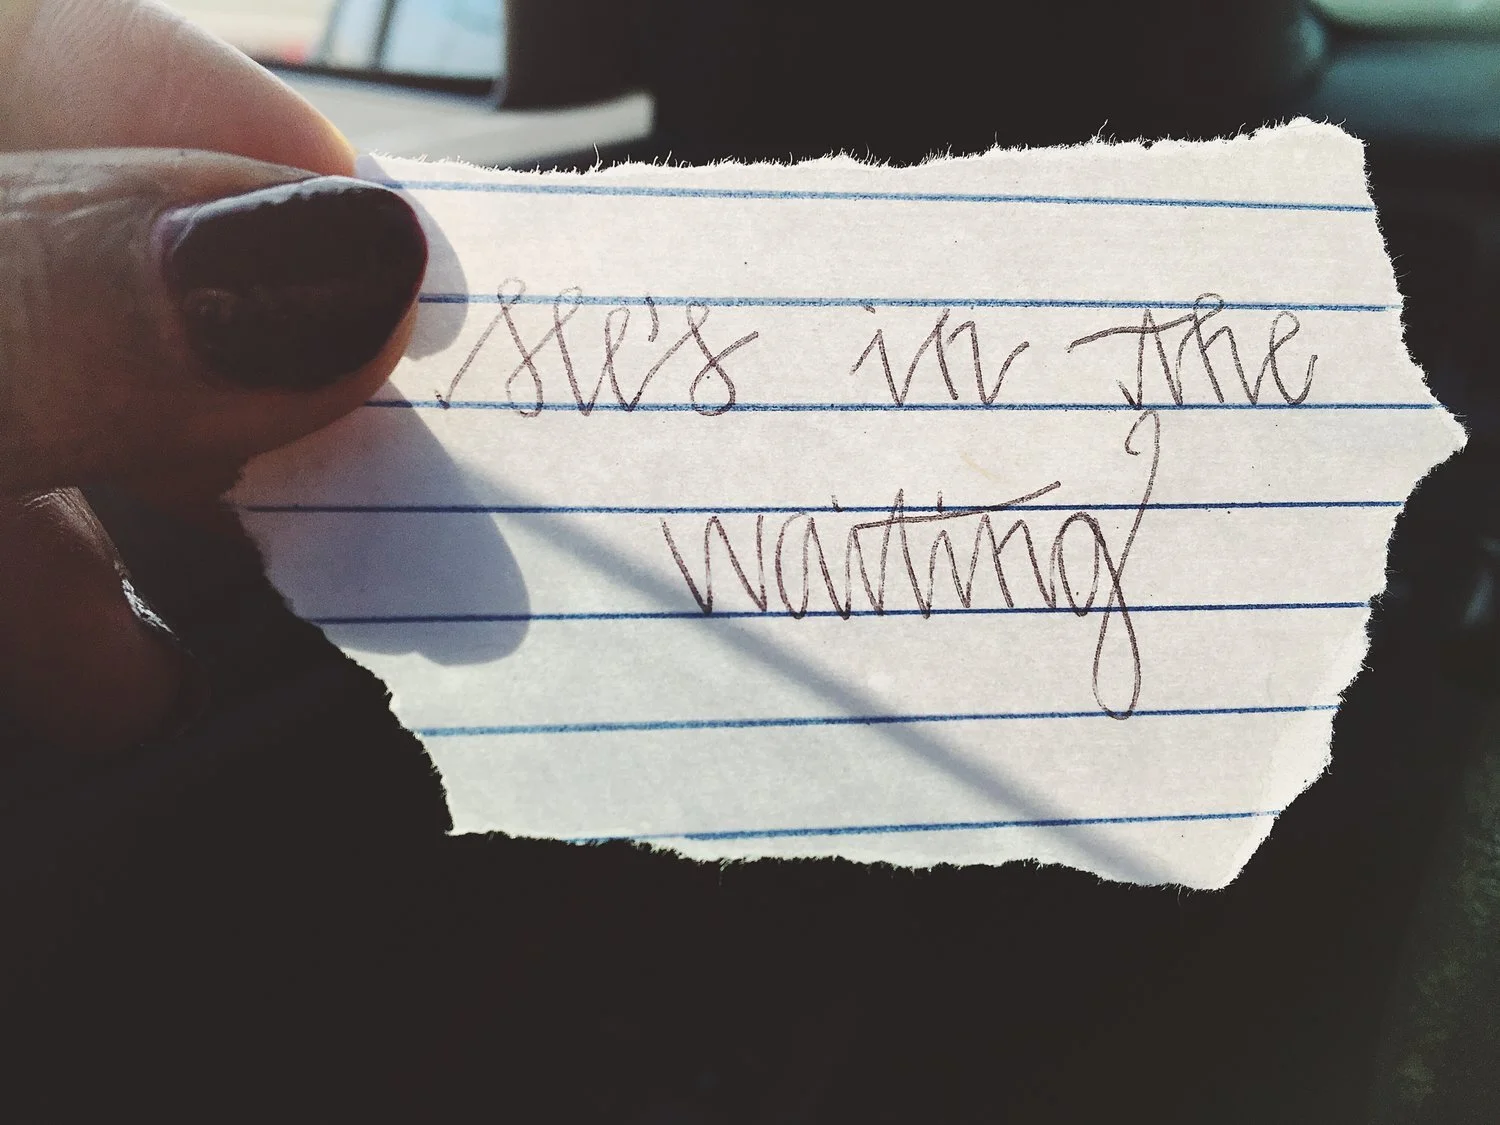 She's in the
waiting